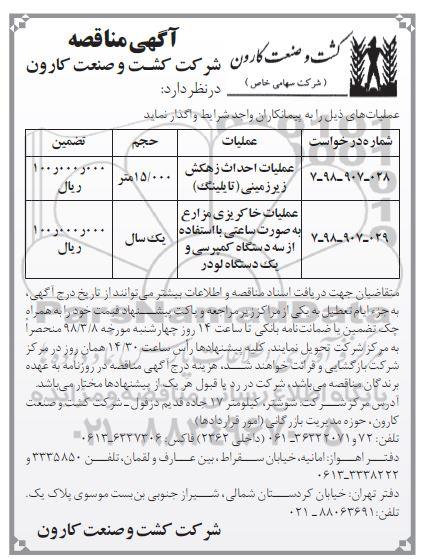 کشت و صنعت کارون
( شرکت سهامی خاص )
آگهی مناقصه
شرکت کشت و صنعت کارون
در نظر دارد:
عملیات‌های ذیل را به پیمانکاران واجد شرایط واگذار نماید
شماره درخواست عملیات حجم تضمین
۷-۹۸-۹۰۷-۰۲۸ عملیات احداث زهکش زیرزمینی (تایلینگ) ۱۵/۰۰۰متر ۱۰۰ر۰۰۰ر۰۰۰ ریال
۷-۹۸-۹۰۷-۰۲۹ عملیات خاکریزی مزارع به صورت ساعتی با استفاده از سه دستگاه کمپرسی و یک دستگاه لودر یک سال ۱۰۰ر۰۰۰ر۰۰۰ ریال
متقاضیان جهت دریافت اسناد مناقصه و اطلاعات بیشتر می‌توانند از تاریخ درج آگهی،
به جزء ایام تعطیل به یکی از مراکز زیر مراجعه و پاکت پیشنهاد قیمت خود را به همراه
چک تضمین یا ضمانت‌نامه بانکی تا ساعت ۱۴ روز چهارشنبه مورخه ۹۸/۳/۸ منحصراً
به مرکز شرکت تحویل نمایند. کلیه پیشنهادها رأس ساعت ۱۴/۳۰ همان روز در مرکز
شرکت بازگشایی و قرائت خواهند شد، هزینه درج آگهی مناقصه در روزنامه به عهده
برندگان مناقصه می‌باشد، شرکت در رد یا قبول هر یک از پیشنهادها مختار می‌باشد.
آدرس مرکز شرکت شوشتر، کیلومتر ۱۷ جاده قدیم دزفول - شرکت کشت و صنعت
کارون، حوزه مدیریت بازرگانی (امور قراردادها)
تلفن: ۷۳ و ۳۶۳۲۲۰۷۱-۰۶۱ (داخلی ۲۳۶۲) فاکس: ۶۳۳۷۳۰۶-۰۶۱۳
دفتر اهواز: امانیه، خیابان سقراط، بین عارف و لقمان، تلفن ۳۳۳۵۸۵۰ و
۳۳۳۸۲۲۲-۰۶۱۳
دفتر تهران: خیابان کردستان شمالی، شیراز جنوبی بن‌بست موسوی پلاک یک.
تلفن: ۸۸۰۶۳۶۹۱ - ۰۲۱
شرکت کشت و صنعت کارون